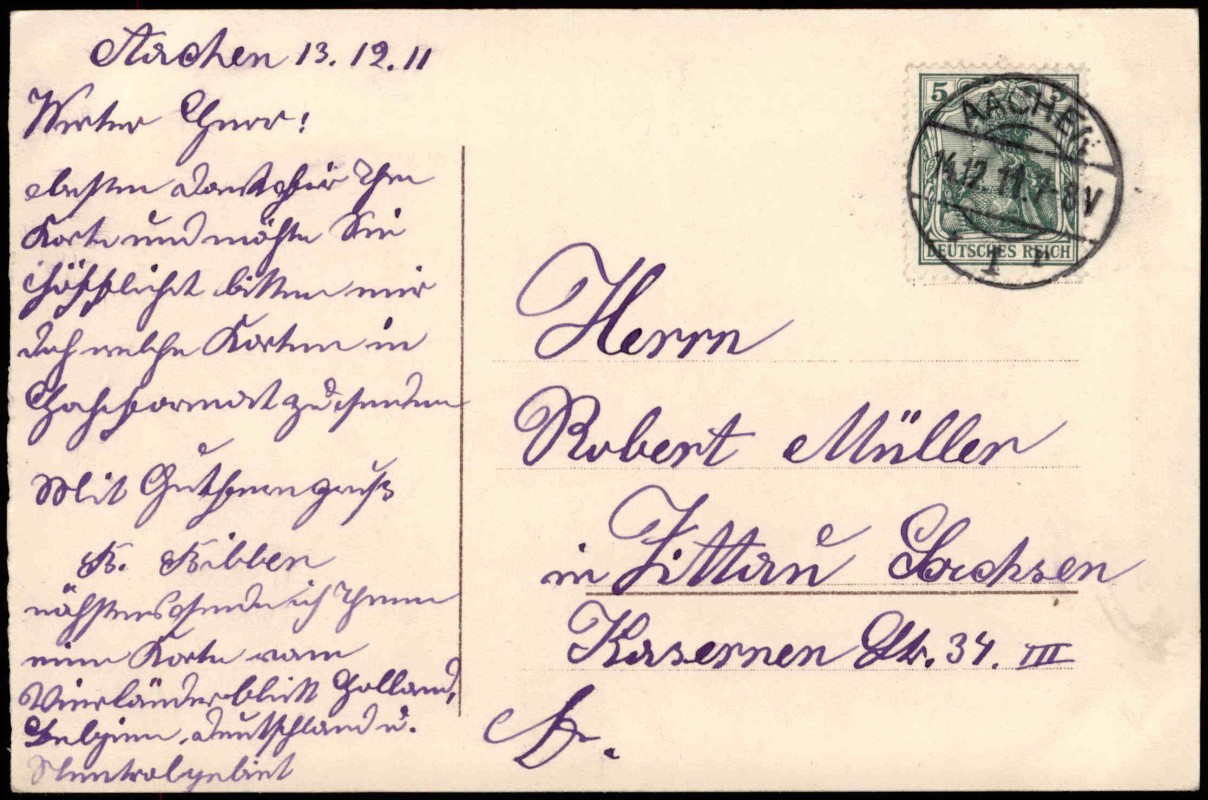 Aachen 13.12.11
Werter Herr!
besten Dank für Ihre
Karte und möchte Sie
höfflichst bitten mir
doch welche Karten in
Hochformat zu senden
Mit Gruß
K. Kibben
nächstens sende ich Ihnen
eine Karte vom
Vierländerblick Holland,
Belgien, Deutschland u.
Neutralgebiet
5
AACHEN
14.12.11.7-8V
1 r
DEUTSCHES REICH
Herrn
Robert Müller
in Zittau Sachsen
Kasernen Str. 34. III